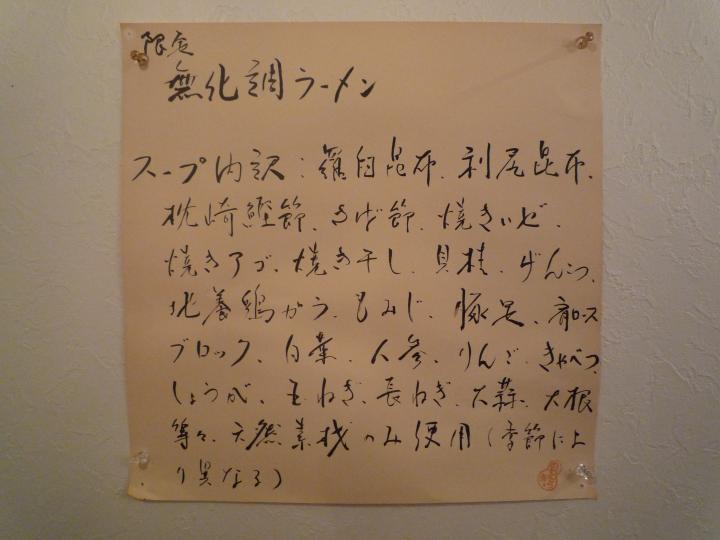 限定
無化調ラーメン
スープ内訳：羅臼昆布、利尻昆布、
枕崎鰹節、さば節、焼きいど、
焼きアゴ、焼き干し、貝柱、げんこつ、
地養鶏がら、もみじ、豚足、肩ロース
ブロック、白菜、人参、りんご、きゃべつ、
しょうが、玉ねぎ、長ねぎ、大蒜、大根
等々、天然素材のみ使用（季節によ
り異なる）